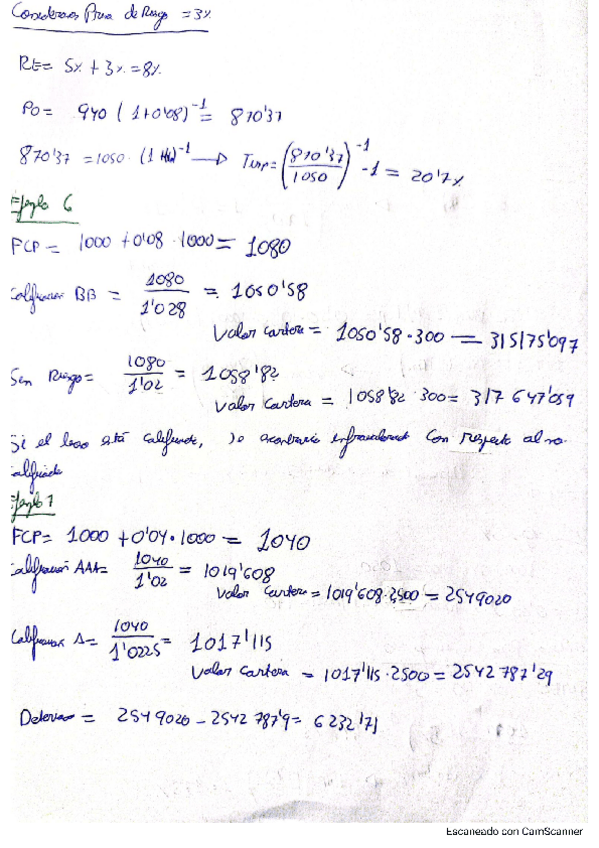 Consideramos Prima de Riesgo = 3%
RE = 5% + 3% = 8%
P0 = 940 (1+0'08)^-1 = 870'37
870'37 = 1050 · (1 )^-1 → = (870'37 / 1050)^-1 - 1 = 20'7%
Ejemplo 6
FCP = 1000 + 0'08 · 1000 = 1080
Calificacion BB = 1080 / 1'028 = 1050'58
Valor cartera = 1050'58 · 300 = 315175'097
Sin Riesgo = 1080 / 1'02 = 1058'82
Valor cartera = 1058'82 · 300 = 317 647'059
Si el bono está calificado, se encontraria infravalorado con respecto al no
calificado
Ejemplo 7
FCP = 1000 + 0'04 · 1000 = 1040
Calificacion AAA = 1040 / 1'02 = 1019'608
Valor cartera = 1019'608 · 2500 = 2549020
Calificacion A = 1040 / 1'0225 = 1017'115
Valor cartera = 1017'115 · 2500 = 2542 787'29
Deterioro = 2549020 - 2542 787'9 = 6232'71
Escaneado con CamScanner